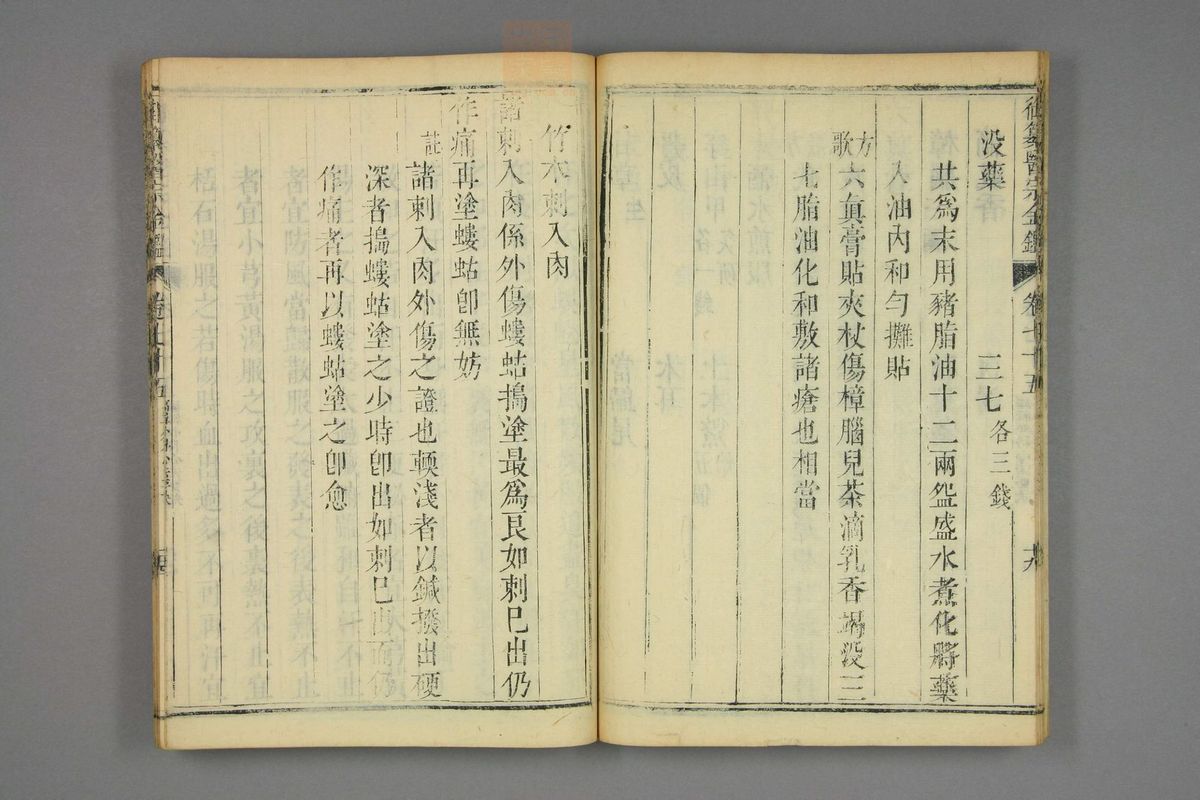 御纂醫宗金鑑 卷七十五
没藥 三七各三錢
共爲末用豬脂油十二兩盌盛水煮化將藥
入油內和勻攤貼
方歌 六真膏貼夾杖傷樟腦兒茶滴乳香竭没三
七脂油化和敷諸瘡也相當
竹木刺入肉
諸刺入肉係外傷螻蛄搗塗最爲良如刺已出仍
作痛再塗螻蛄卽無妨
註 諸刺入肉外傷之證也輭淺者以鍼撥出硬
深者搗螻蛄塗之少時卽出如刺已出而仍
作痛者再以螻蛄塗之卽愈
卷七十五